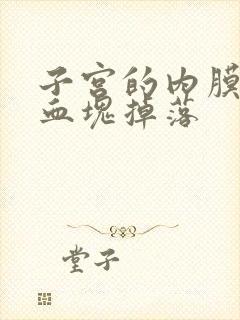 子宫的内膜
血块掉落
堂子